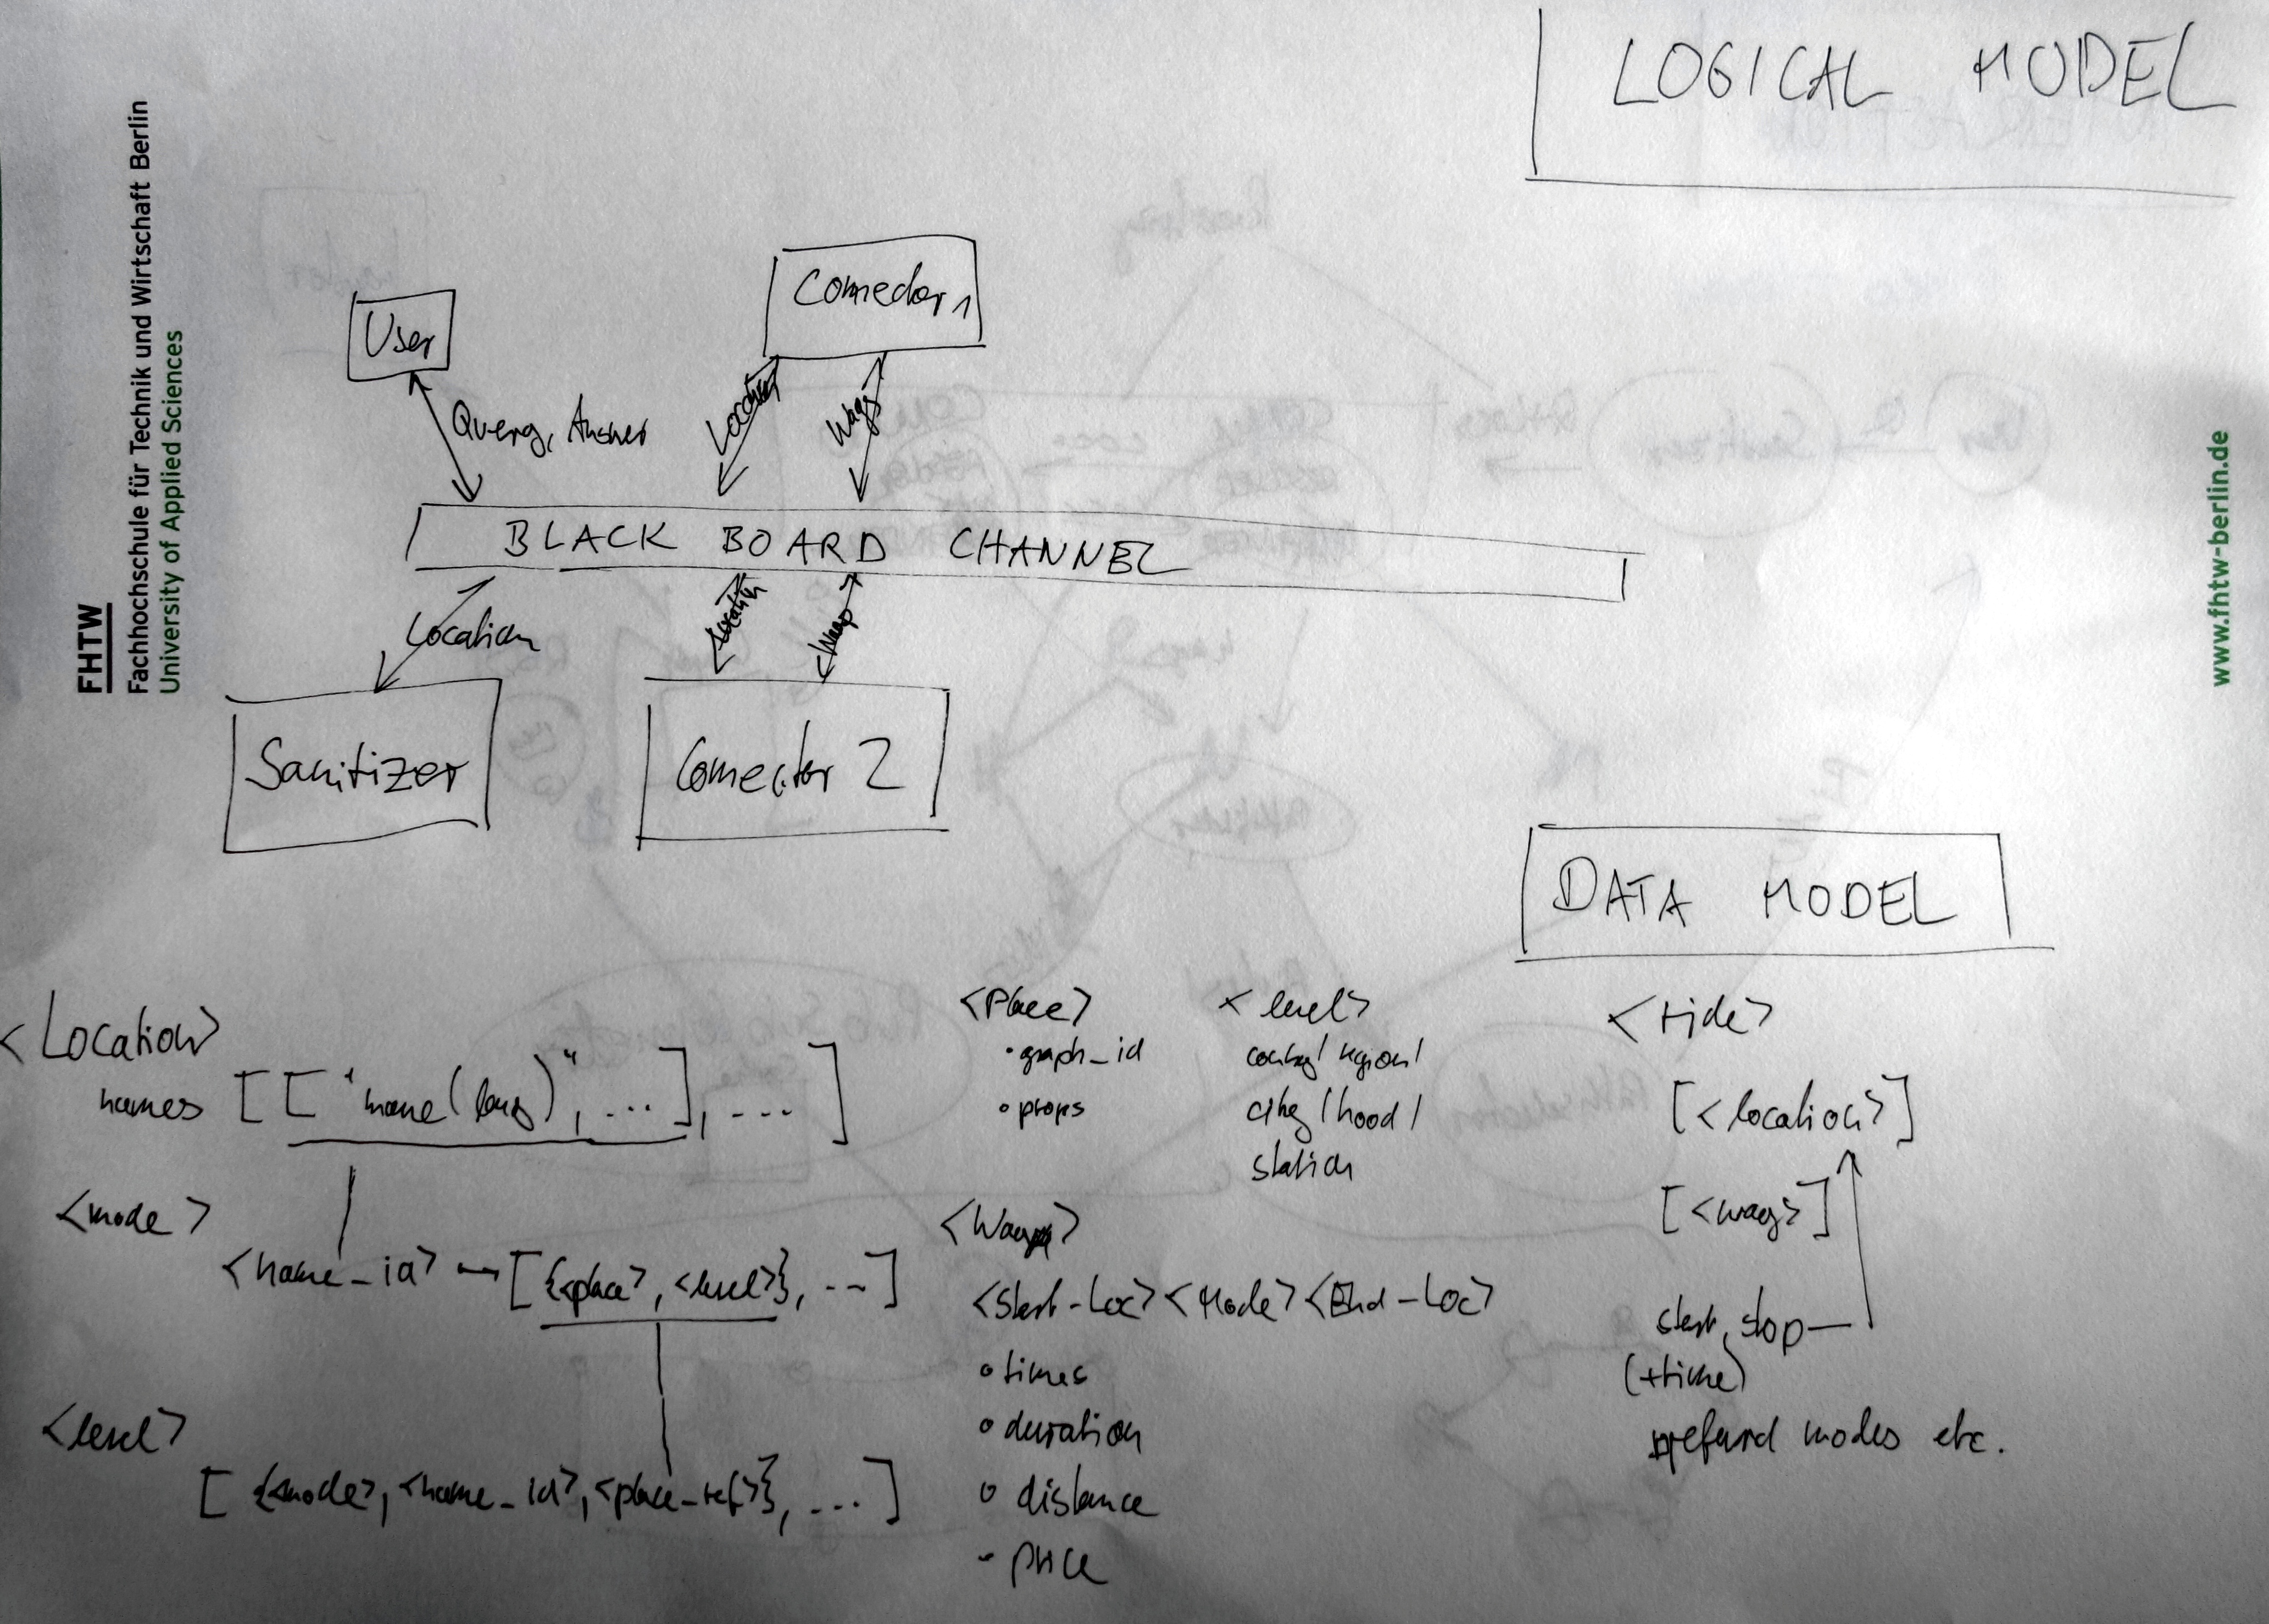 LOGICAL MODEL
FHTW
Fachhochschule für Technik und Wirtschaft Berlin
University of Applied Sciences
www.fhtw-berlin.de
User
Connector 1
Query, Answer
Location
Ways
BLACK BOARD CHANNEL
Location
Location
Ways
Sanitizer
Connector 2
DATA MODEL
<Location>
names [["name(lang)", ...], ....]
<mode>
<name_id> → [{<place>, <level>}, ...]
<level>
[{<mode>, <name_id>, <place_ref>}, ....]
<Place>
• graph_id
• props
<level>
country / region /
city / hood /
station
<Way>
<Start-Loc> <Mode> <End-Loc>
• times
• duration
• distance
- price
<ride>
[<location>]
[<way>]
start, stop
(+time)
modes etc.